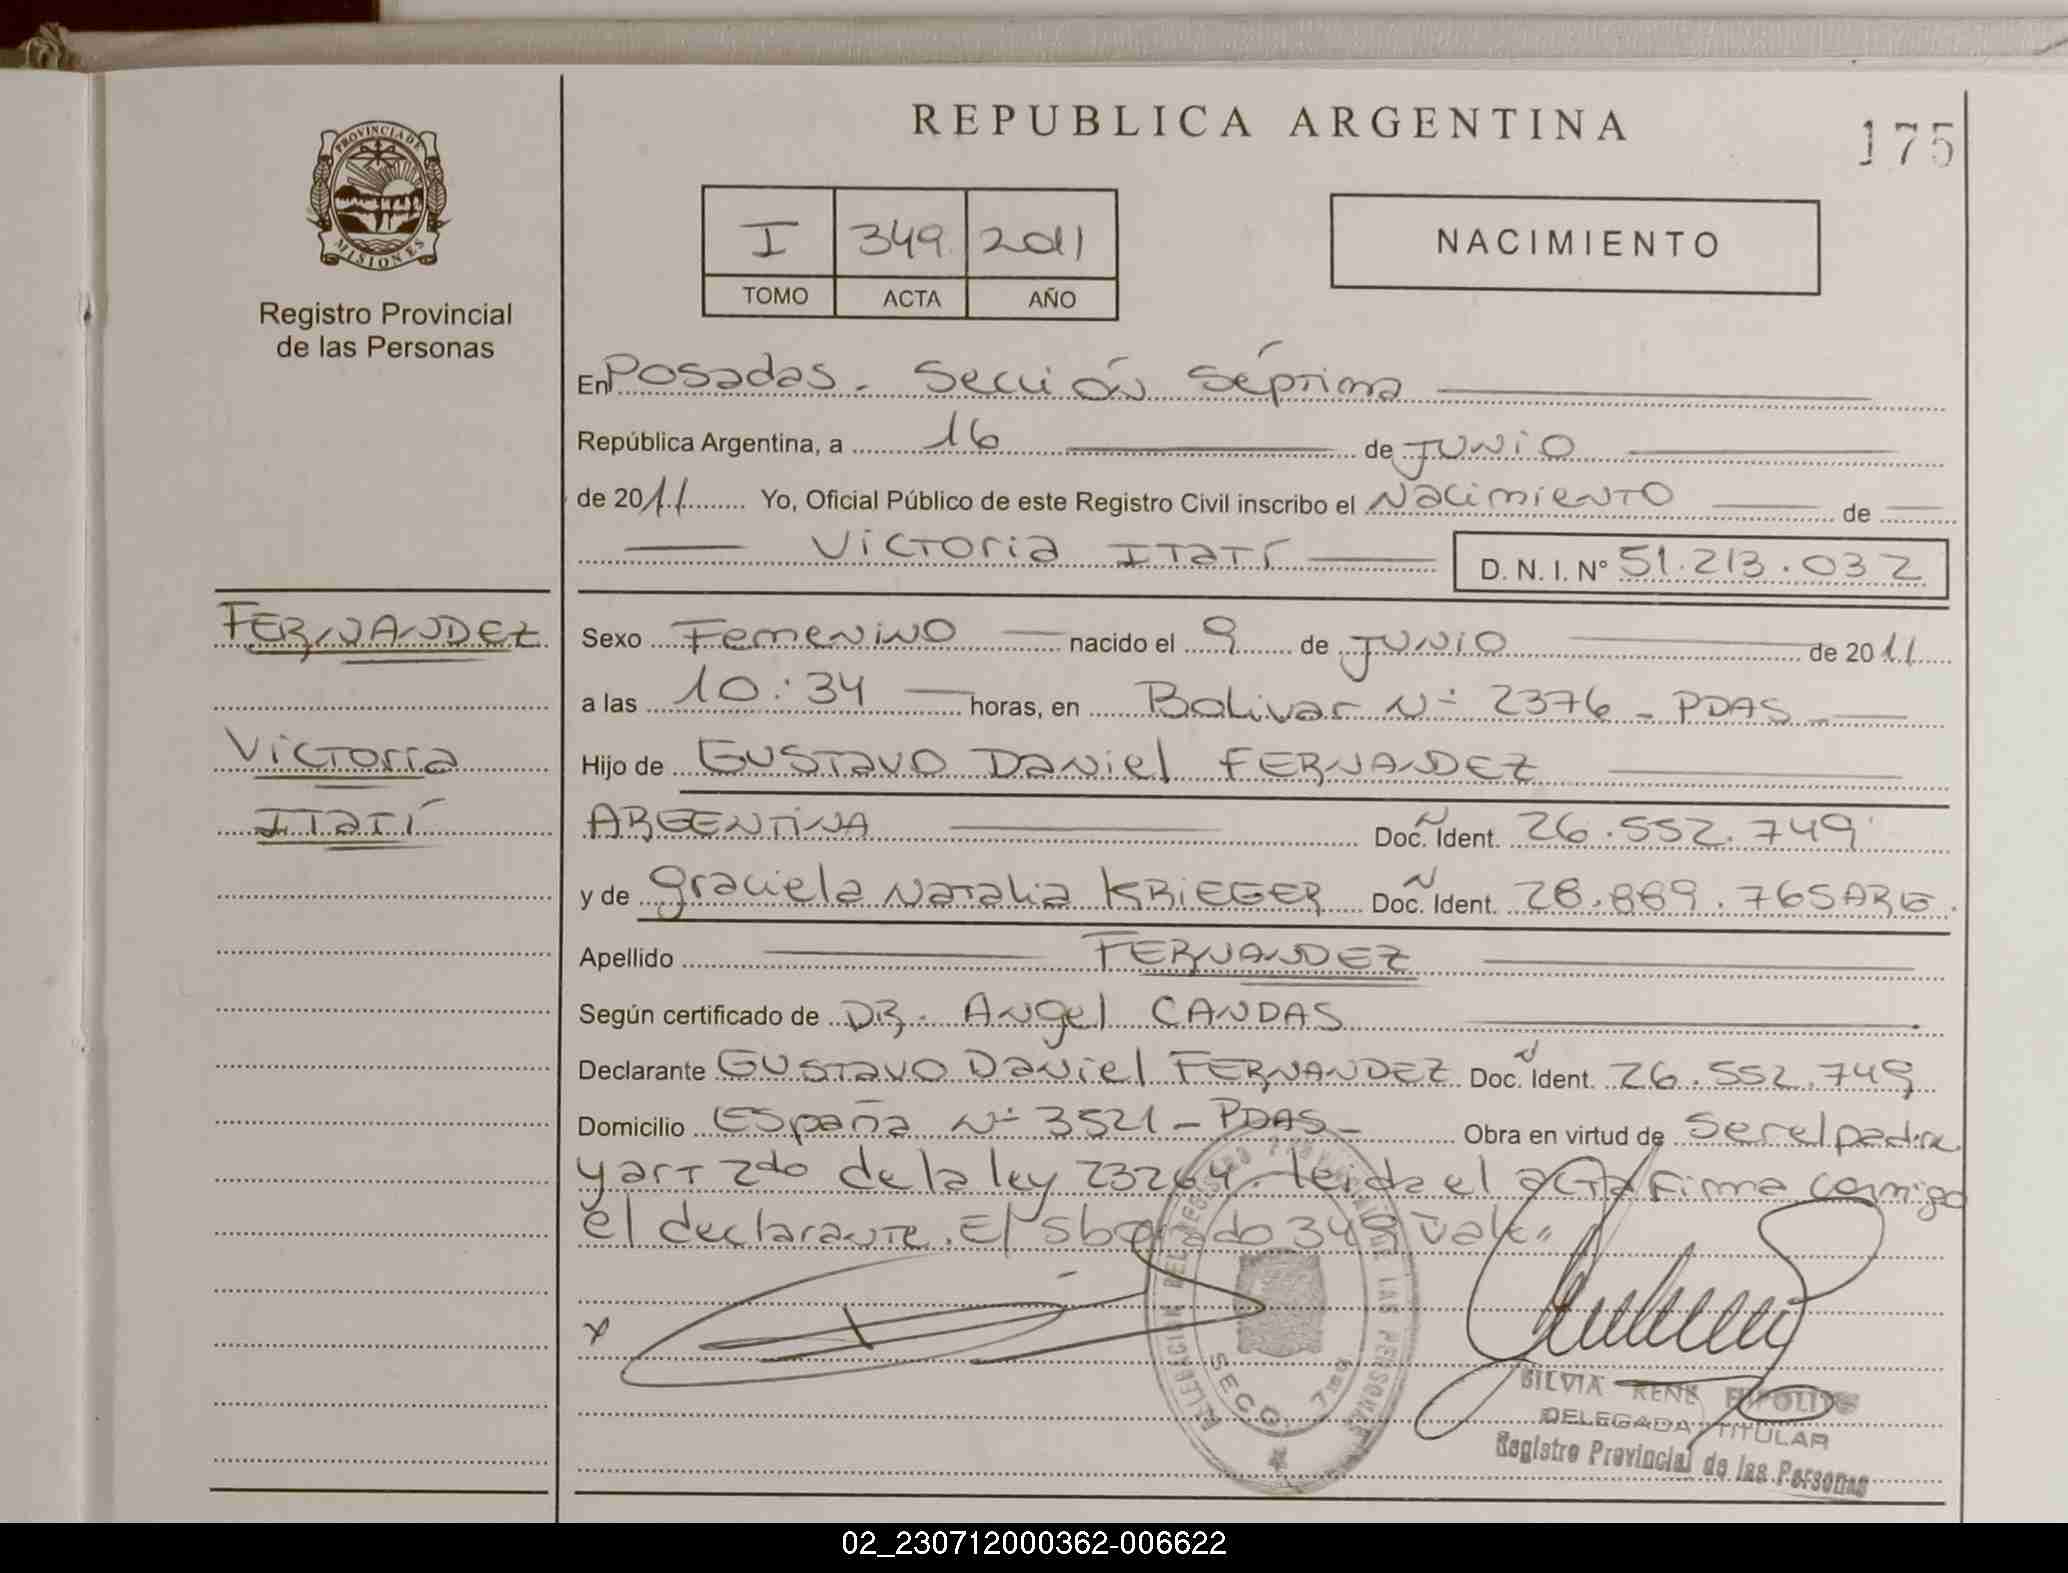 REPUBLICA ARGENTINA
175
PROVINCIA DE
MISIONES
Registro Provincial
de las Personas
I 349 2011
TOMO ACTA AÑO
NACIMIENTO
En Posadas - Sección Séptima
República Argentina, a 16 de JUNIO
de 2011 Yo, Oficial Público de este Registro Civil inscribo el Nacimiento de
Victoria Itatí D. N. I. N° 51.213.032
FERNANDEZ
Victoria
Itatí
Sexo Femenino nacido el 9 de JUNIO de 2011
a las 10:34 horas, en Bolivar N° 2376 - PDAS -
Hijo de Gustavo Daniel FERNANDEZ
ARGENTINA Doc. Ident. 26.552.749
y de Graciela Natalia KRIEGER Doc. Ident. 28.889.765 ARG.
Apellido FERNANDEZ
Según certificado de DR. Angel CANDAS
Declarante Gustavo Daniel FERNANDEZ Doc. Ident. 26.552.749
Domicilio España N° 3521 - PDAS - Obra en virtud de ser el padre
y art 2do de la ley 23264. leida el acta firma conmigo
el declarante. El sborrado 349 vale"
DELEGACION DEL REGISTRO PROVINCIAL DE LAS PERSONAS
SECC. 7ma
SILVIA RENE
DELEGADA TITULAR
Registro Provincial de las Personas
02_230712000362-006622